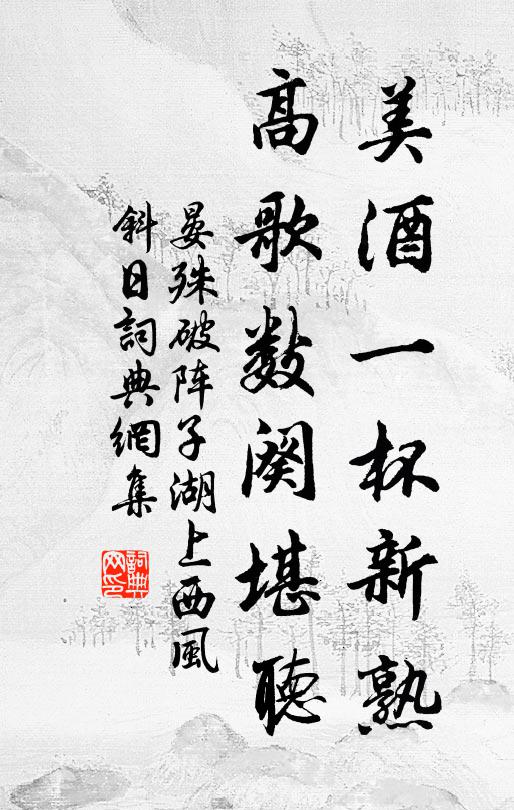 美酒一杯新熟
高歌数阕堪聽
晏殊破阵子湖上西風
斜日詞典網集
詞典
网印